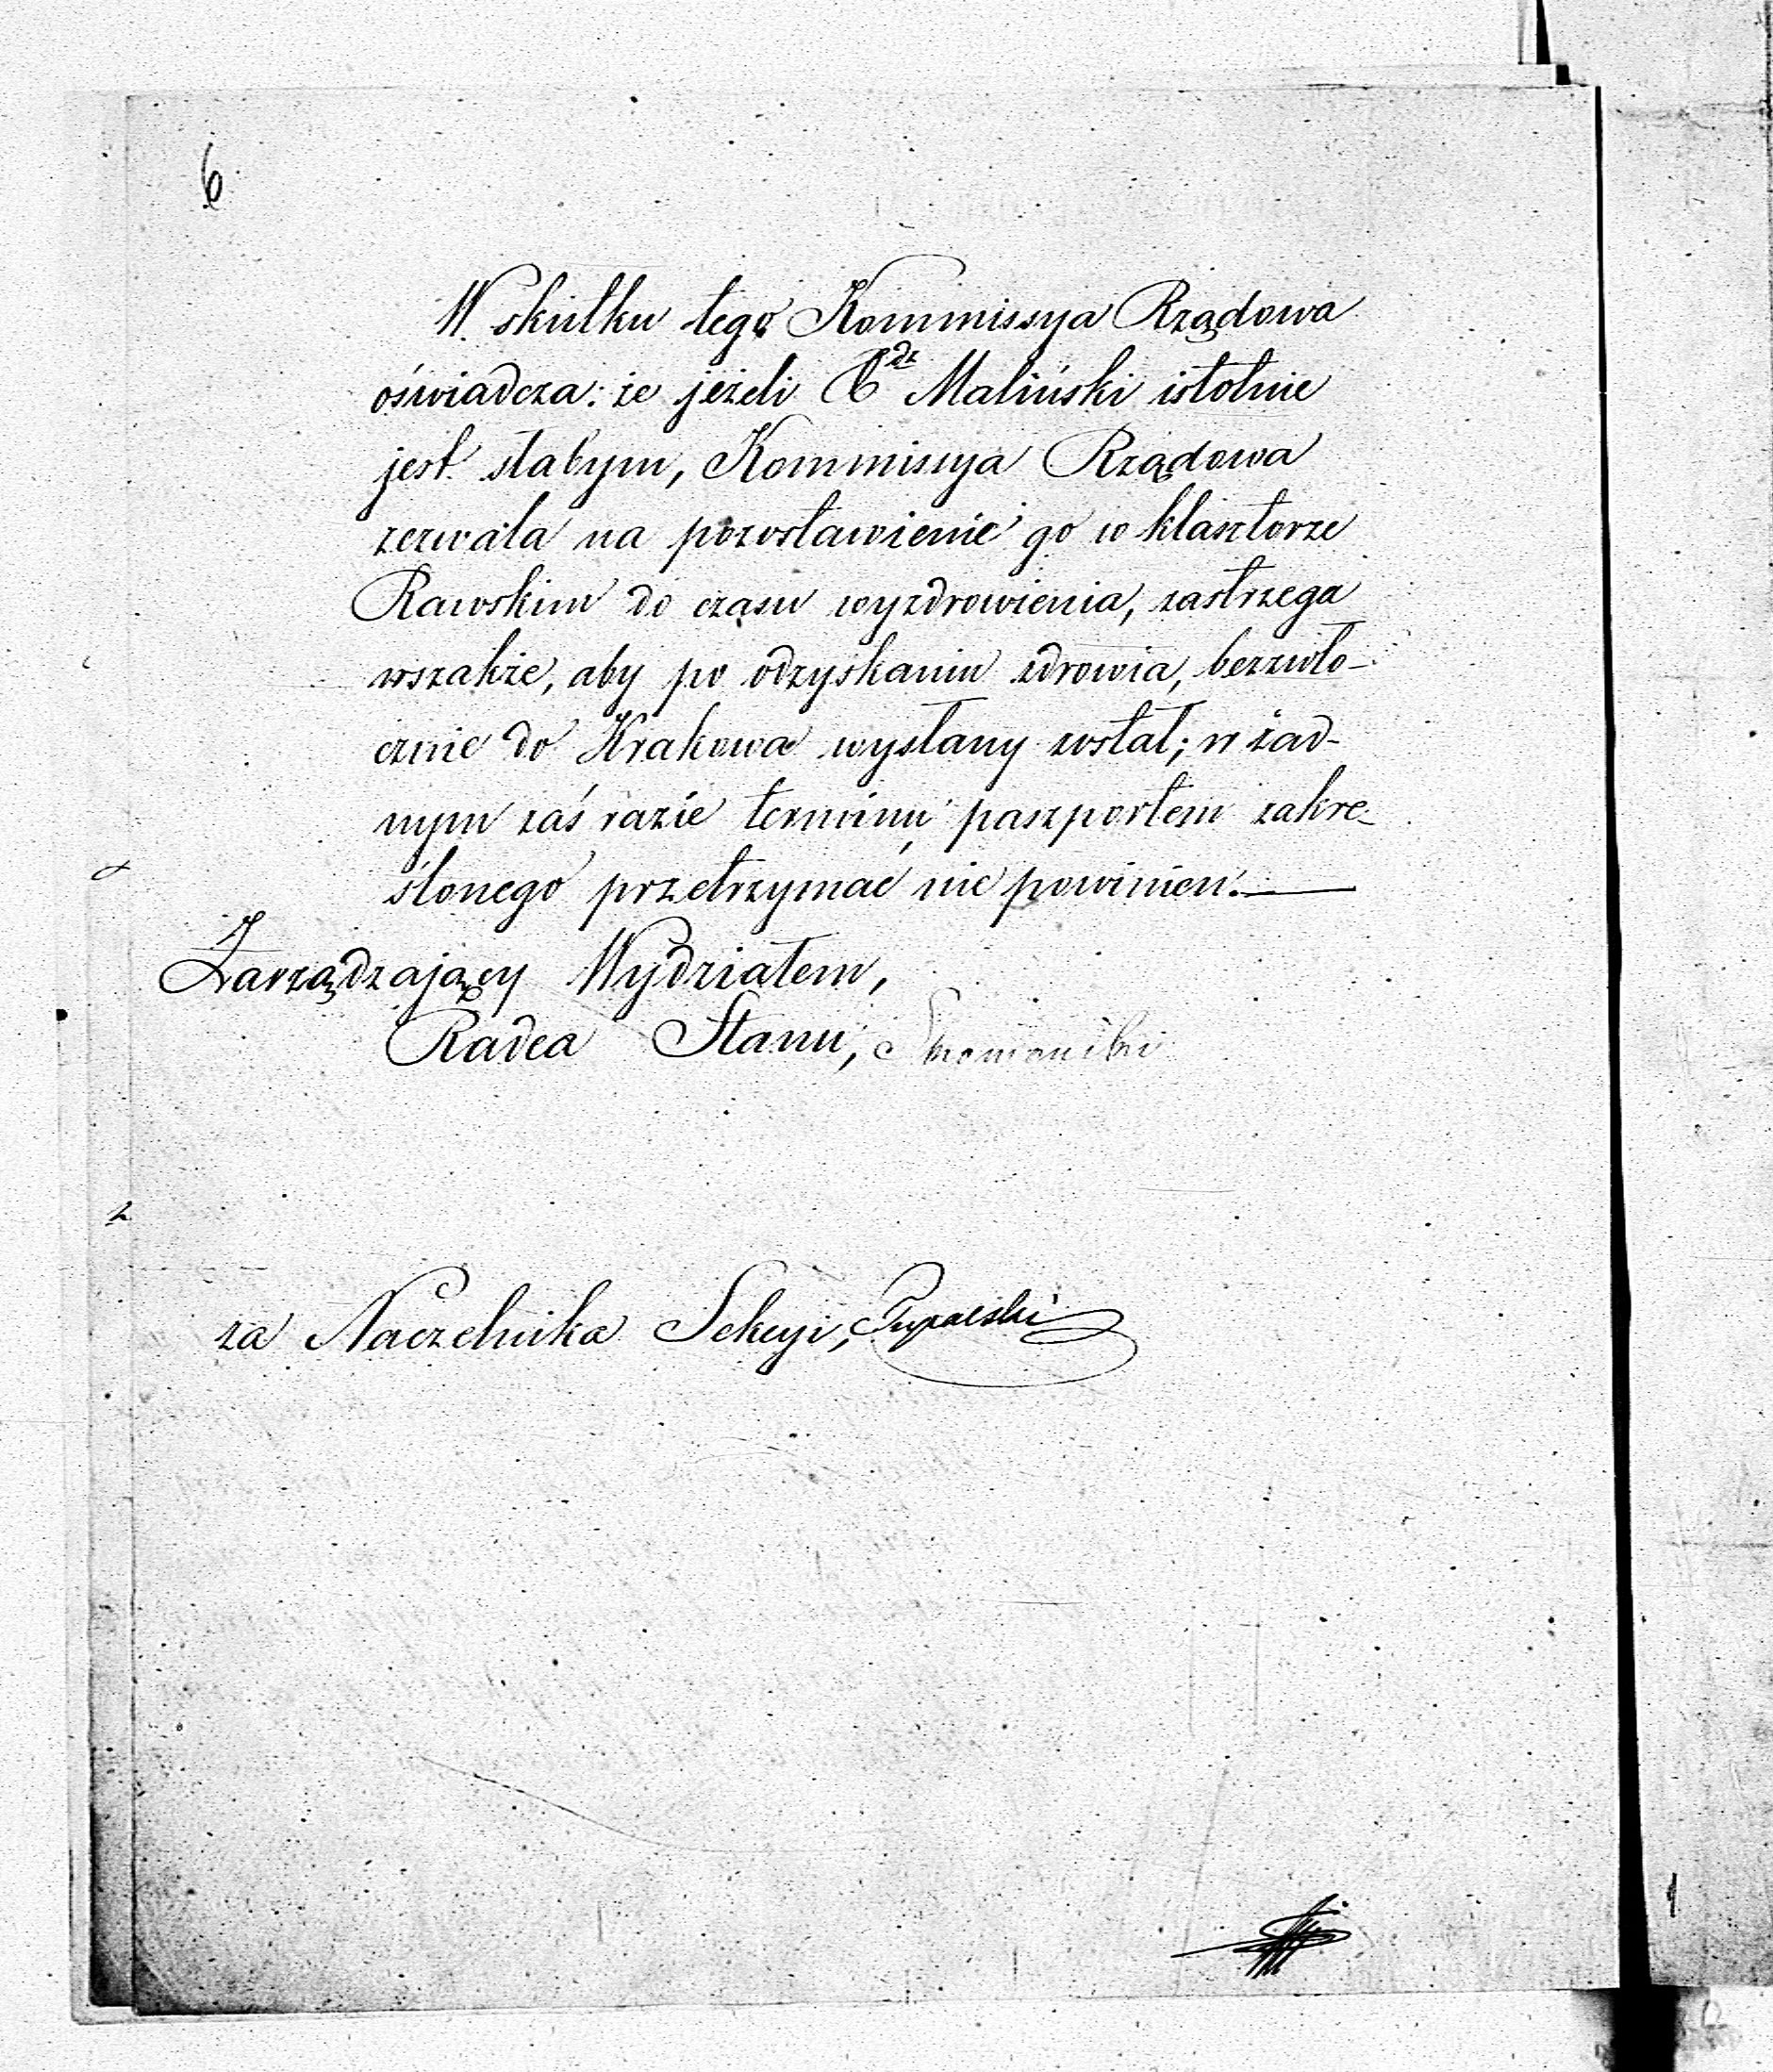 6
W skutku tego Kommissya Rządowa
oświadcza: że jeżeli X<sup>dz</sup> Maliński istotnie
jest słabym, Kommissya Rządowa
zezwala na pozostawienie go w klasztorze
Rawskim do czasu wyzdrowienia, zastrzega
wszakże, aby po odzyskaniu zdrowia, bezzwło-
cznie do Krakowa wysłany został; w żad-
nym zaś razie terminu paszportem zakre-
ślonego przetrzymać nie powinien.
Zarządzający Wydziałem,
Radca Stanu,
za Naczelnika Sekcyi,